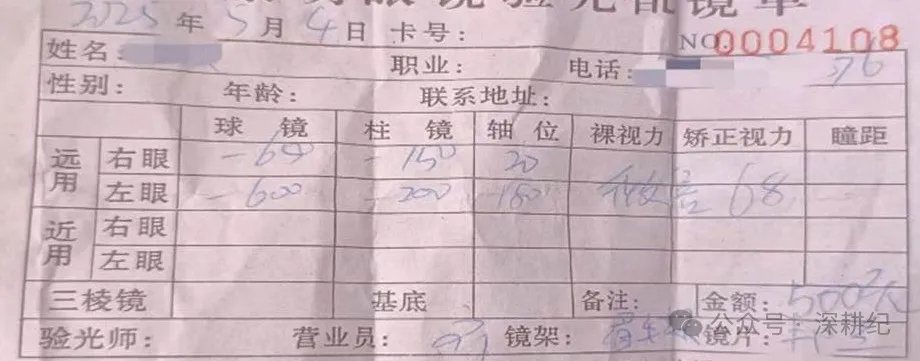 眼镜验光配镜单
2025年5月4日 卡号: NO.0004108
姓名: 职业: 电话: 76
性别: 年龄: 联系地址:
球镜 柱镜 轴位 裸视力 矫正视力 瞳距
远用 右眼 -150 20
左眼 -600 -200 180 68
近用 右眼
左眼
三棱镜 基底 备注: 金额: 500
验光师: 营业员: 镜架: 镜片:
公众号·深耕纪